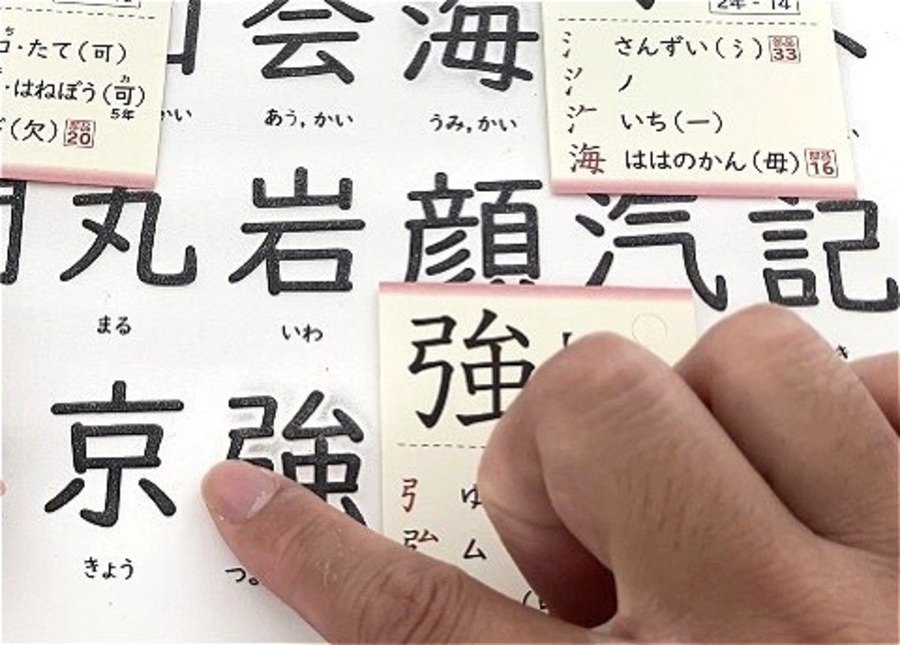 会 海
あう,かい
うみ,かい
かい
・たて(可)
・はねぼう(可)
カ
5年
(欠) 部品20
2年-14
さんずい(氵) 部品33
ノ
いち(一)
海 ははのかん(毋) 部品16
丸 岩 顔 汽 記
まる
いわ
強
弓
ム
京 強
きょう
つ